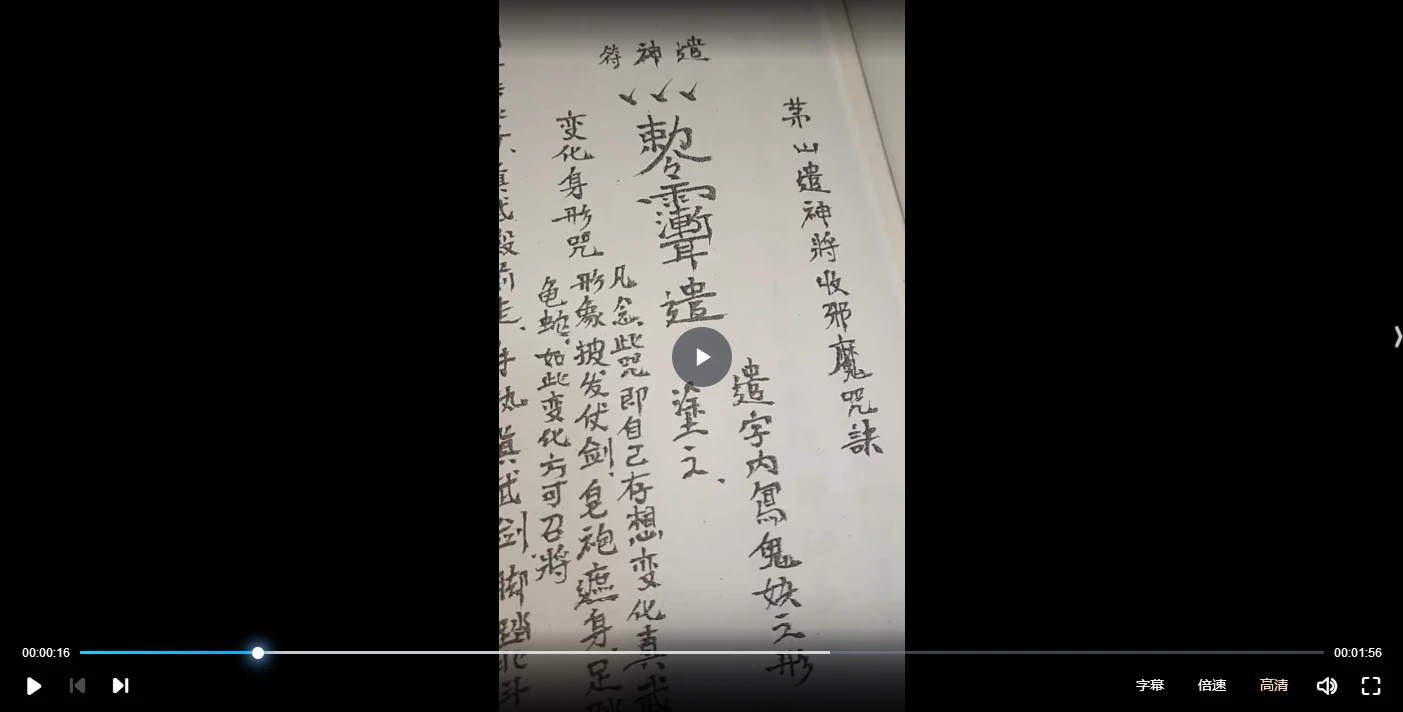 茅山遣神將收邪魔咒訣
遣神符
敕令
遣
遣字内寫鬼妖之形
塗之、
变化身形咒
凡念此咒即自己存想变化真武
形象披发仗剑、皂袍遮身、足
龟蛇、如此变化方可召將
真武殿前
真武剑脚踏北斗
00:00:16
00:01:56
字幕
倍速
高清